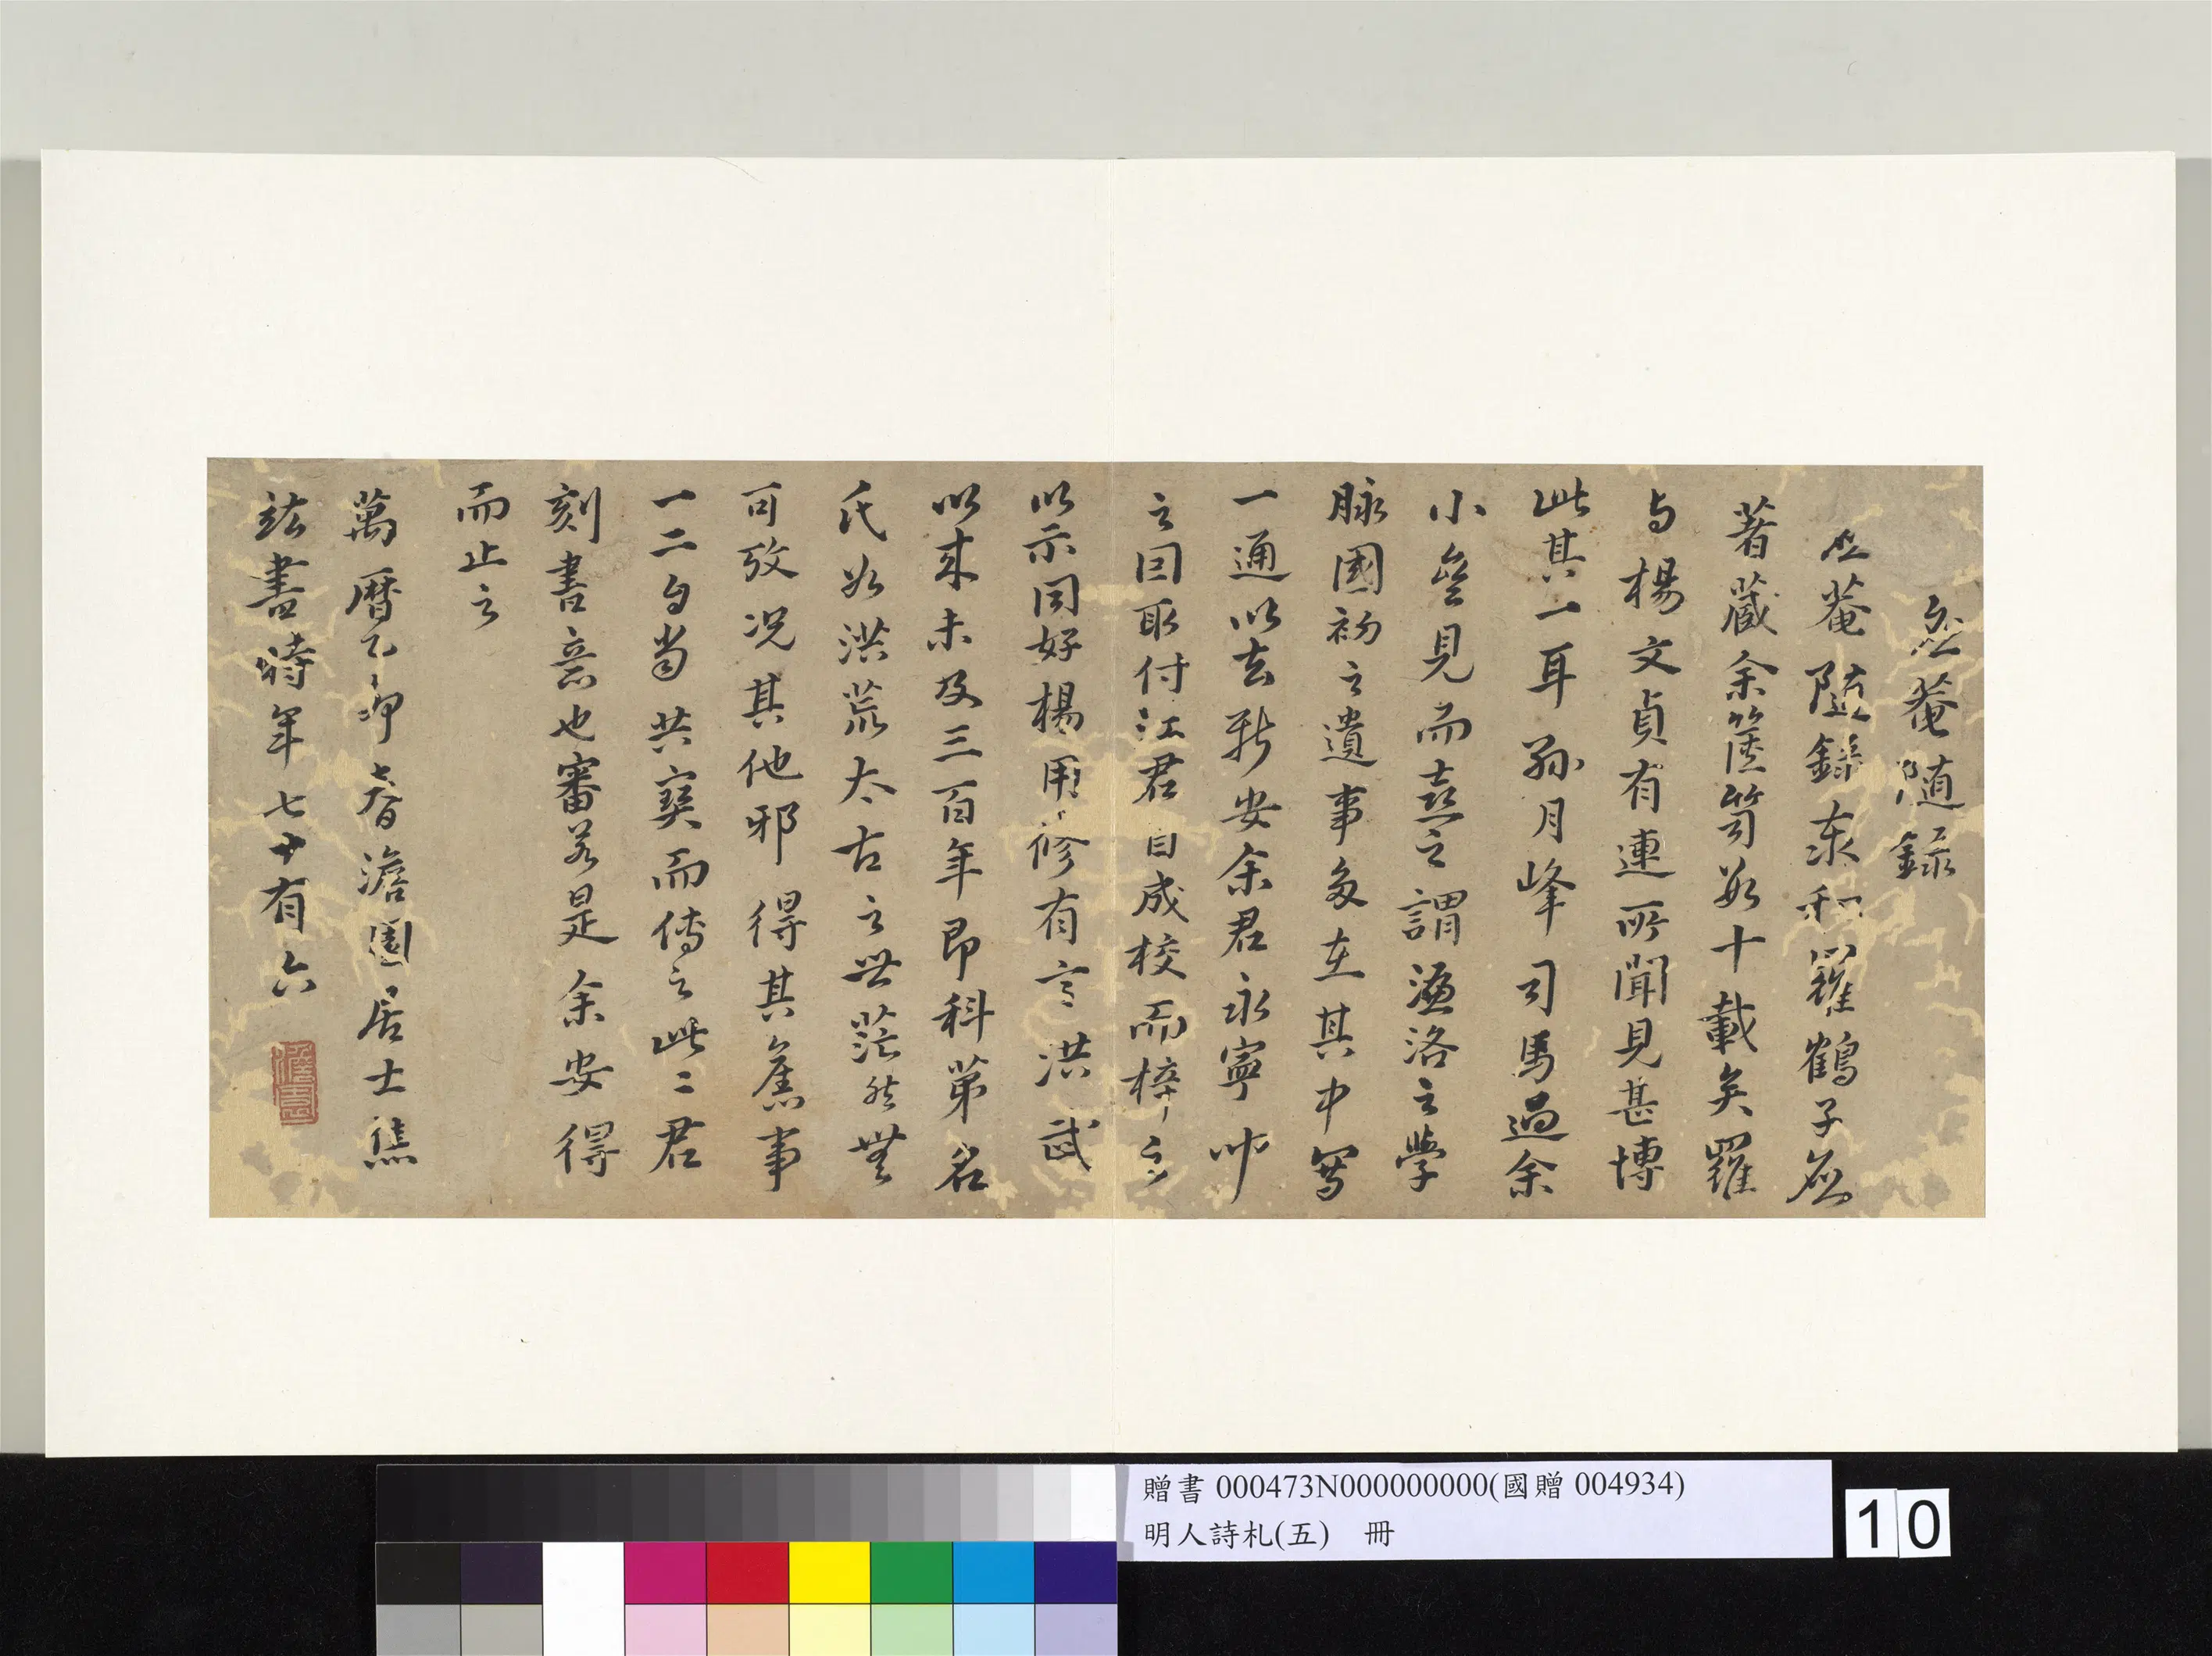 應菴隨録
應菴隨録泰和羅鶴子應
著藏余篋笥數十載矣羅
与楊文貞有連所聞見甚博
此其一耳孫月峰司馬過余
小壑見而喜之謂濂洛之學
脉國初之遺事多在其中寫
一通以去新安余君永寧抄
之因取付江君自成校而梓之
以示同好楊用修有言洪武
以来未及三百年即科第名
氏如洪荒太古之世茫然無
可攷况其他邪得其舊事
一二句當共寶而傳之此二君
刻書意也審若是余安得
而止之
萬曆乙卯春澹園居士焦
竑書時年七十有六
贈書 000473N000000000(國贈 004934)
明人詩札(五) 冊
10